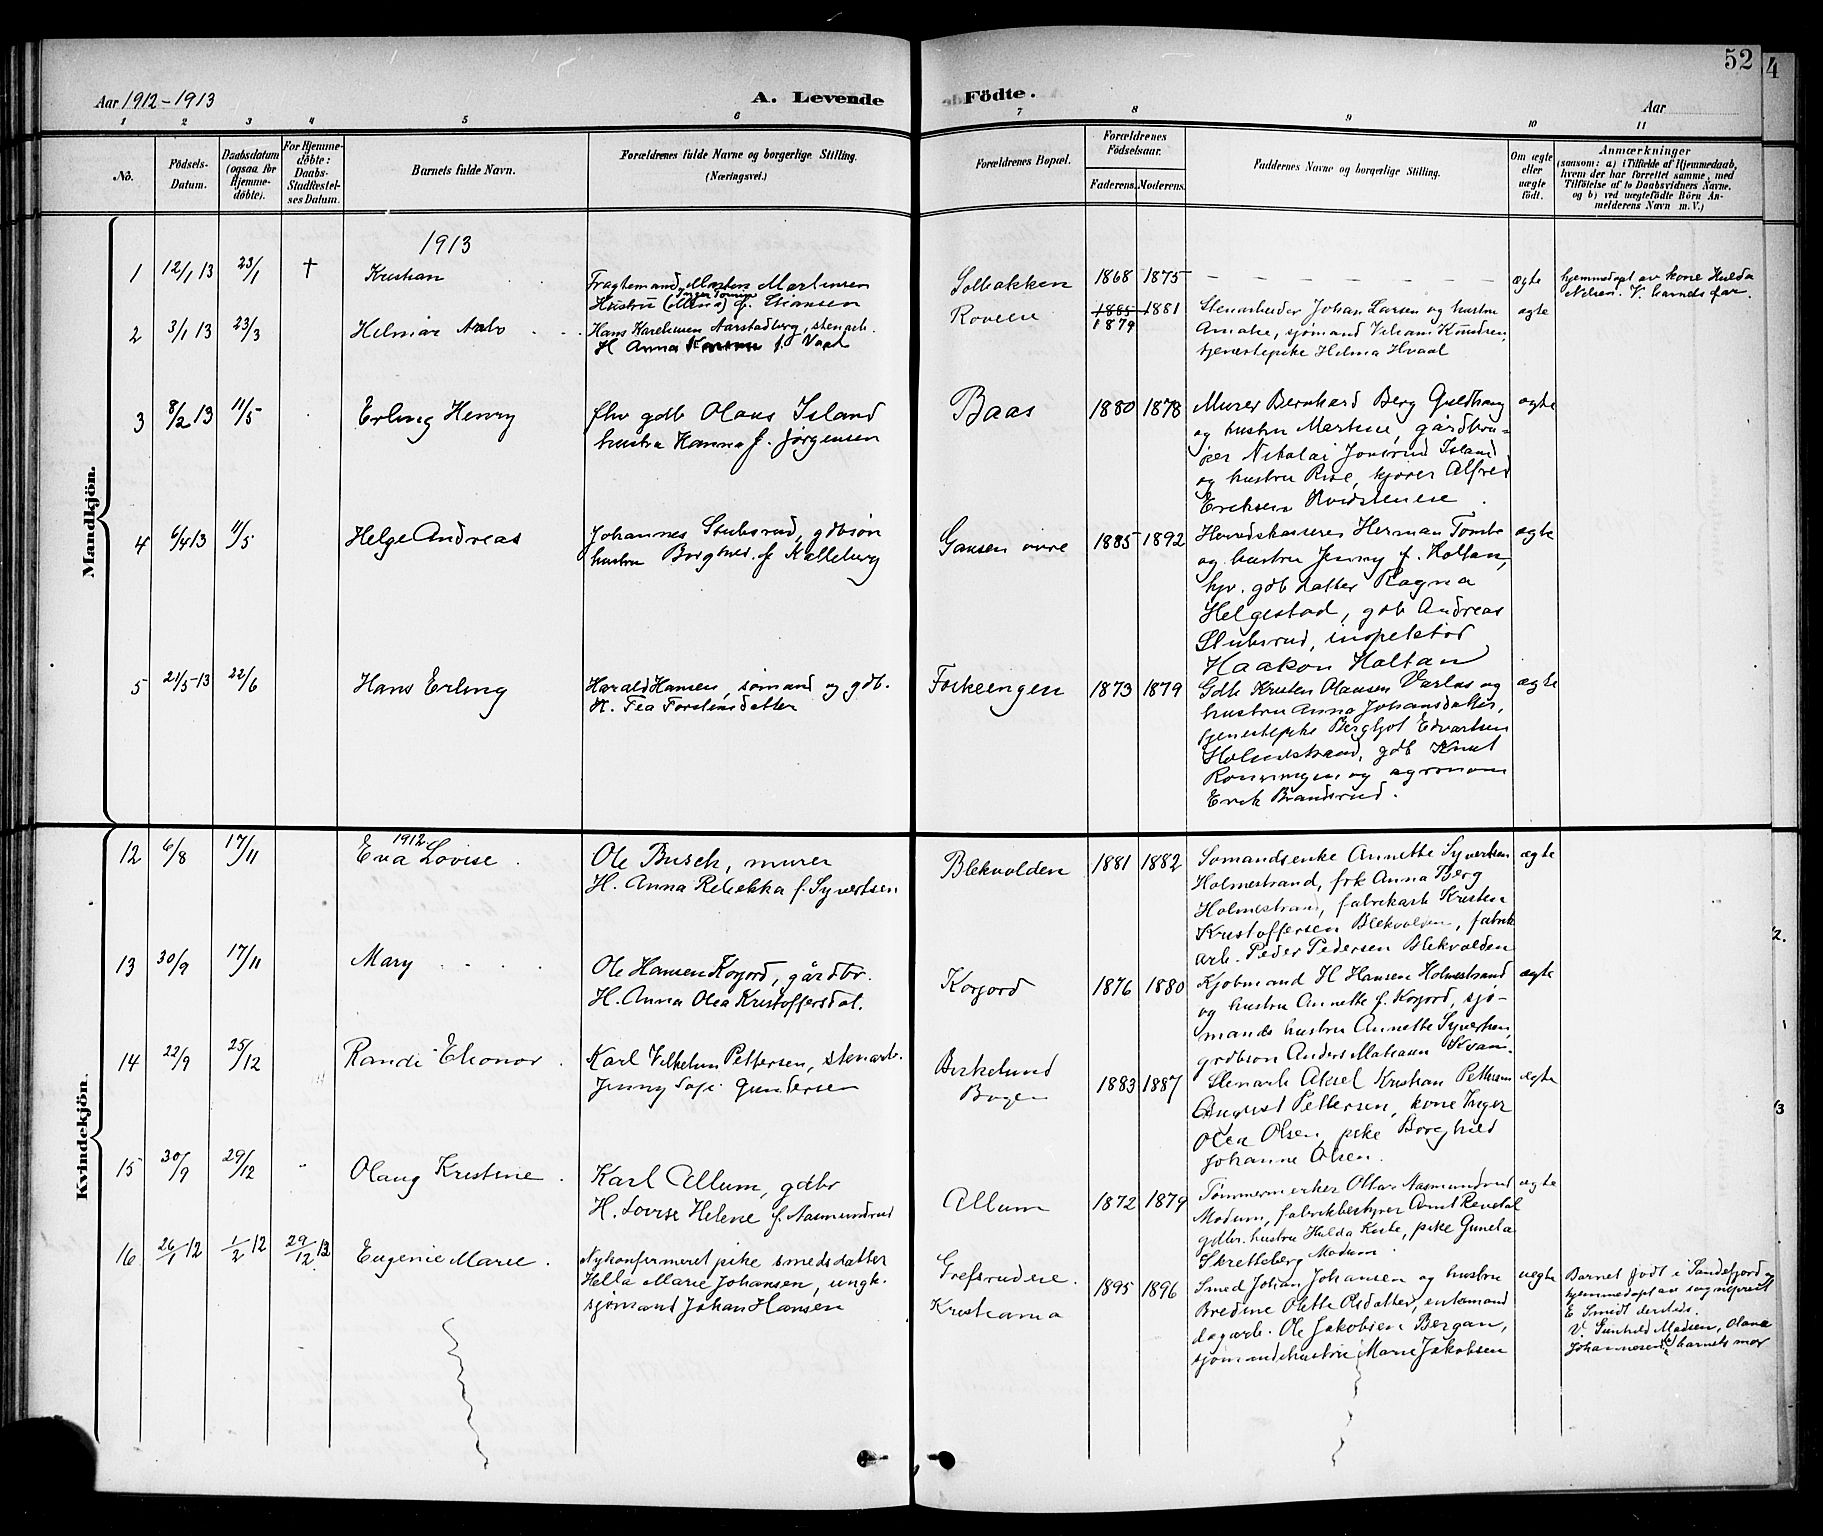 52
4
Aar 1912-1913
A. Levende
Födte.
Aar
1 2 3 4 5 6 7 8 9 10 11
No.
Födsels-
Datum.
Daabsdatum
(ogsaa for
Hjemme-
döbte).
For Hjemme-
döbte:
Daabs-
Stadfæstel-
ses Datum.
Barnets fulde Navn.
Forældrenes fulde Navne og borgerlige Stilling.
(Næringsvei.)
Forældrenes Bopæl.
Forældrenes
Födselsaar.
Faderens. Moderens.
Faddernes Navne og borgerlige Stilling.
Om ægte
eller
uægte
födt.
Anmærkninger
(saasom: a) i Tilfælde af Hjemmedaab,
hvem der har forrettet samme, med
Tilföielse af to Daabsvidners Navne,
og b) ved uægtefödte Börn An-
melderens Navn m. V.)
Mandkjön.
1913
1 12/1 13 23/1 † Kristian
Fragtemand Martin Martinsen
Hustru (Alma) f. Stiansen
Solbakken 1868 1875 - - - - - ægte
hjemmedøpt av kone Hulda
Nilsen. V. barnets far.
2 3/1 13 23/3 Helmar Aalv
Hans Karelius Aarstadberg, stenarb.
H. Anna f. Vaal
Roveen 1885 1879 1881
Stenarbeider Johan Larsen og hustru
Amalie, sjømand Viliam Knudsen,
tjenestepike Helma Hvaal
ægte
3 8/2 13 11/5 Erling Henry
fhv gdb Olaus Island
hustru Hanna f. Jørgensen
Baas 1880 1878
Murer Bernhard Berg Guldhaug
og hustru Martine, gårdbru-
ker Nikolai Jonsrud Island
og hustru Rise, kjører Alfred
Eriksen
ægte
4 6/4 13 11/5 Helge Andreas
Johannes Stubsrud, gdbsøn
hustru Borghild f Kalleberg
Gausen øvre 1885 1892
Herredskasserer Herman Tombe
og hustru Jenny f. Holtan,
hjv. gdb datter Ragna
Helgestad, gdb Andreas
Stubsrud, inspektør
Haakon Holtan
ægte
5 21/5-13 22/6 Hans Erling
Harald Hansen, sømand og gdb.
H. Tea Torstensdatter
Foskeengen 1873 1879
Gdb Kristen Olausen Varlas og
hustru Anna Johansdatter,
tjenestepike Bergljot Edvartsen
Holmestrand, gdb Knut
Rønningen og agronom
Erik Brandsrud.
ægte
Kvindekjön.
1912
12 6/8 17/11 Eva Lovise
Ole Busch, murer
H. Anna Rebekka f. Syvertsen
Blekvolden 1881 1882
Sømandsenke Annette Syvertsen
Holmestrand, frk Anna Berg
Holmestrand, fabrikarb Kristen
Kristoffersen Blekvolden, fabrik
arb. Peder Pedersen Blekvolden
ægte
13 30/9 17/11 Mary
Ole Hansen Korjord, gårdbr.
H. Anna Olea Kristoffersdat.
Korjord 1876 1880
Kjøbmand H Hansen Holmestrand
og hustru Annette f. Korjord, sjø-
mands hustru Annette Syvertsen,
grdbsøn Anders Kvam.
ægte
14 22/9 25/12 Randi Elionor
Karl Vilhelm Pettersen, stenarb.
Jenny Sofi Gundersen
Birkelund
Bogen
1883 1887
Stenarb Aksel Kristian Pettersen
August Pettersen, kone Inger
Olea Olsen, pike Borghild
Johanne Olsen.
ægte
15 30/9 29/12 Olaug Kristine
Karl Allum, gdbr
H. Lovise Helene f. Aasmundrud
Allum 1872 1879
Tømmermerker Ottar Aasmundrud
Modum, fabrikbestyrer Arnt Revetal
gdbr. hustru Hulda, pike Gunela
Skretteberg Modum.
ægte
16 26/1 12 1/2 12 29/12 12 Eugenie Marie
Nykonfirmeret pike smedsdatter
Hella Marie Johansen, ungk.
sjømand Johan Hansen
Grefsrudeie.
Kristiania
1895 1896
Smed Johan Johansen og hustru
Bredine Olette Olsdatter, enkemand
dagarb. Ole Jakobsen Bergan,
sjømandshustru Marie Jakobsen
uegte
Barnet født i Sandefjord og
hjemmedøpt av sogneprest
E Smidt dersteds.
V. Gunhild Madsen, Olava
Johannesen, barnets mor